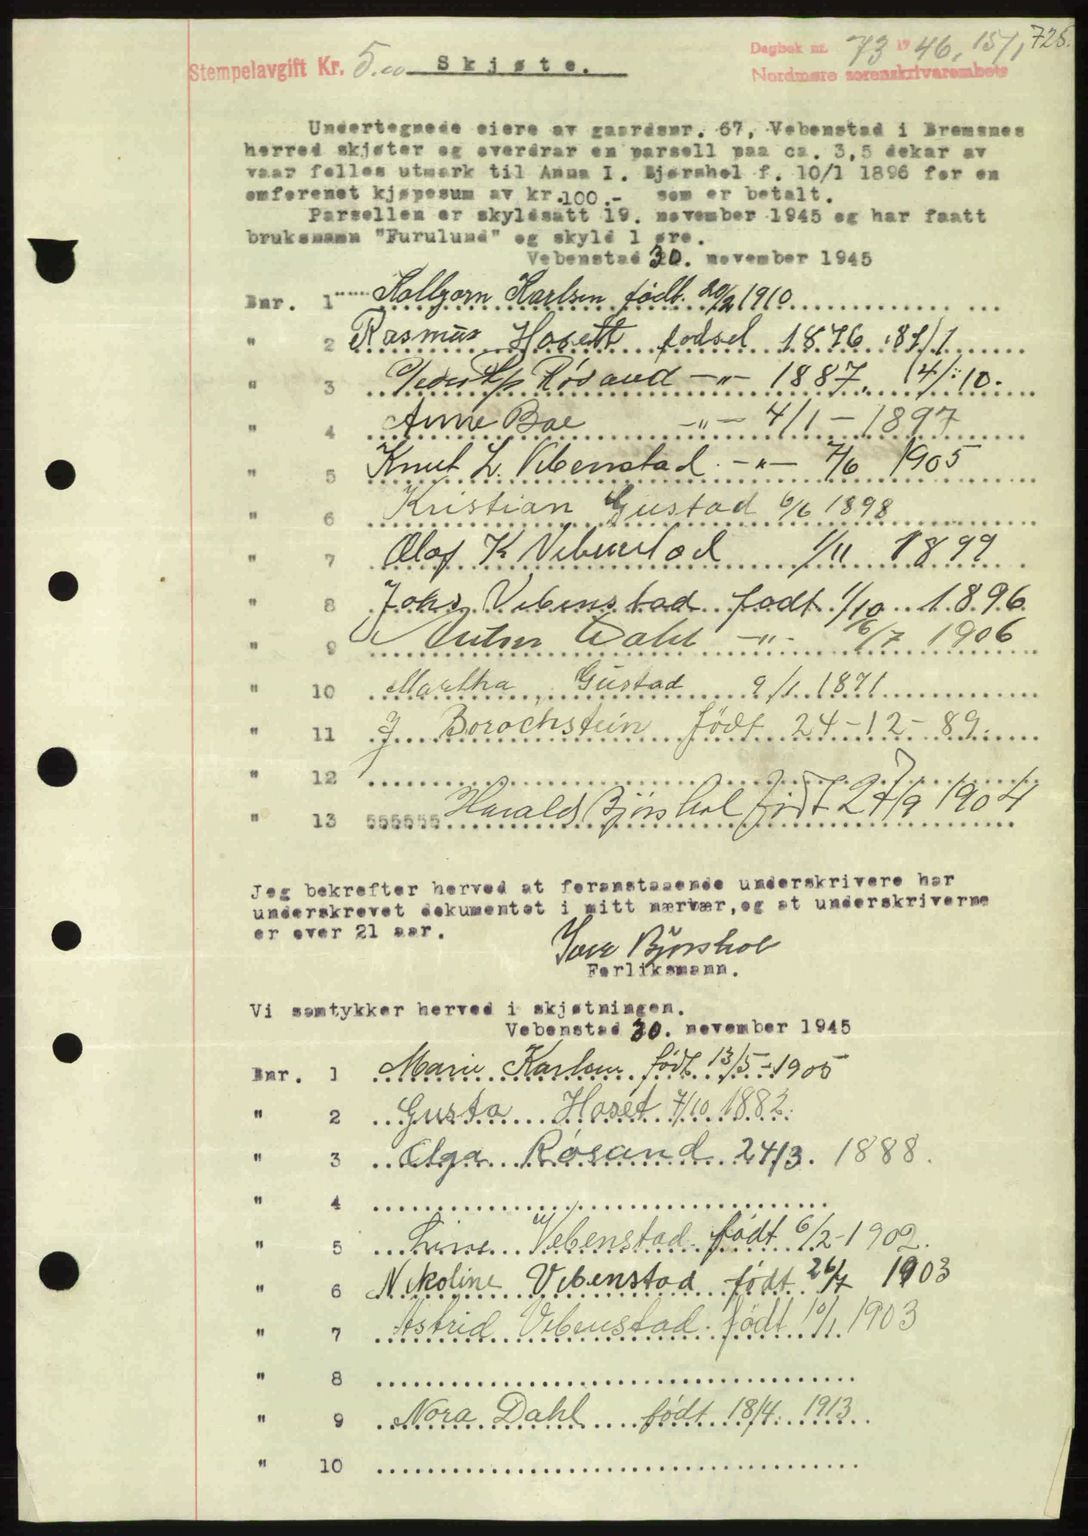 Dagbok nr. 73 1946, 15/1 725.
Stempelavgift Kr. 5.00 Skjøte.
Nordmøre sorenskrivarembete
Undertegnede eiere av gaardsnr. 67, Vebenstad i Bremsnes
herred skjøter og overdrar en parsell paa ca. 3,5 dekar av
vaar felles utmark til Anna I. Bjørshol f. 10/1 1896 for en
omforenet kjøpesum av kr.100.- som er betalt.
Parsellen er skyldsatt 19. november 1945 og har faatt
bruksnamn "Furulund" og skyld 1 øre.
Vebenstad 30. november 1945
Bnr. 1 Kolbjørn Karlsen født. 20/2 1910
" 2 Rasmus Hosett fødsel 1876 /1
" 3 Røsand -"- 1887, 14/10.
" 4 Anne Boe -"- 4/1 - 1897
" 5 Knut L. Vebenstad. -"- 7/6 1905
" 6 Kristian Gustad 6/6 1898
" 7 Olaf K Vebenstad 1/11 1899
" 8 Johs Vebenstad født 1/10 1896
" 9 Anton Dahl -"- 6/7 1906
" 10 Martha Gustad 9/1 1871
" 11 J Borochstein født 24-12-89.
" 12
" 13 555555 Harald Bjørshol født 27/9 1904
Jeg bekrefter herved at foranstaaende underskrivere har
underskrevet dokumentet i mitt nærvær,og at underskriverne
er over 21 aar.
Iver Bjørshol
Forliksmann.
Vi samtykker herved i skjøtningen.
Vebenstad 30. november 1945
Bnr. 1 Marie Karlsen født 13/5-1905
" 2 Gusta Hoset 7/10 1882.
" 3 Olga Røsand 24/3. 1888.
" 4
" 5 Vebenstad født 6/2-1902.
" 6 Nikoline Vebenstad født 26/7 1903
" 7 Astrid Vebenstad født 10/1 1903
" 8
" 9 Nora Dahl født 18/4. 1913
" 10